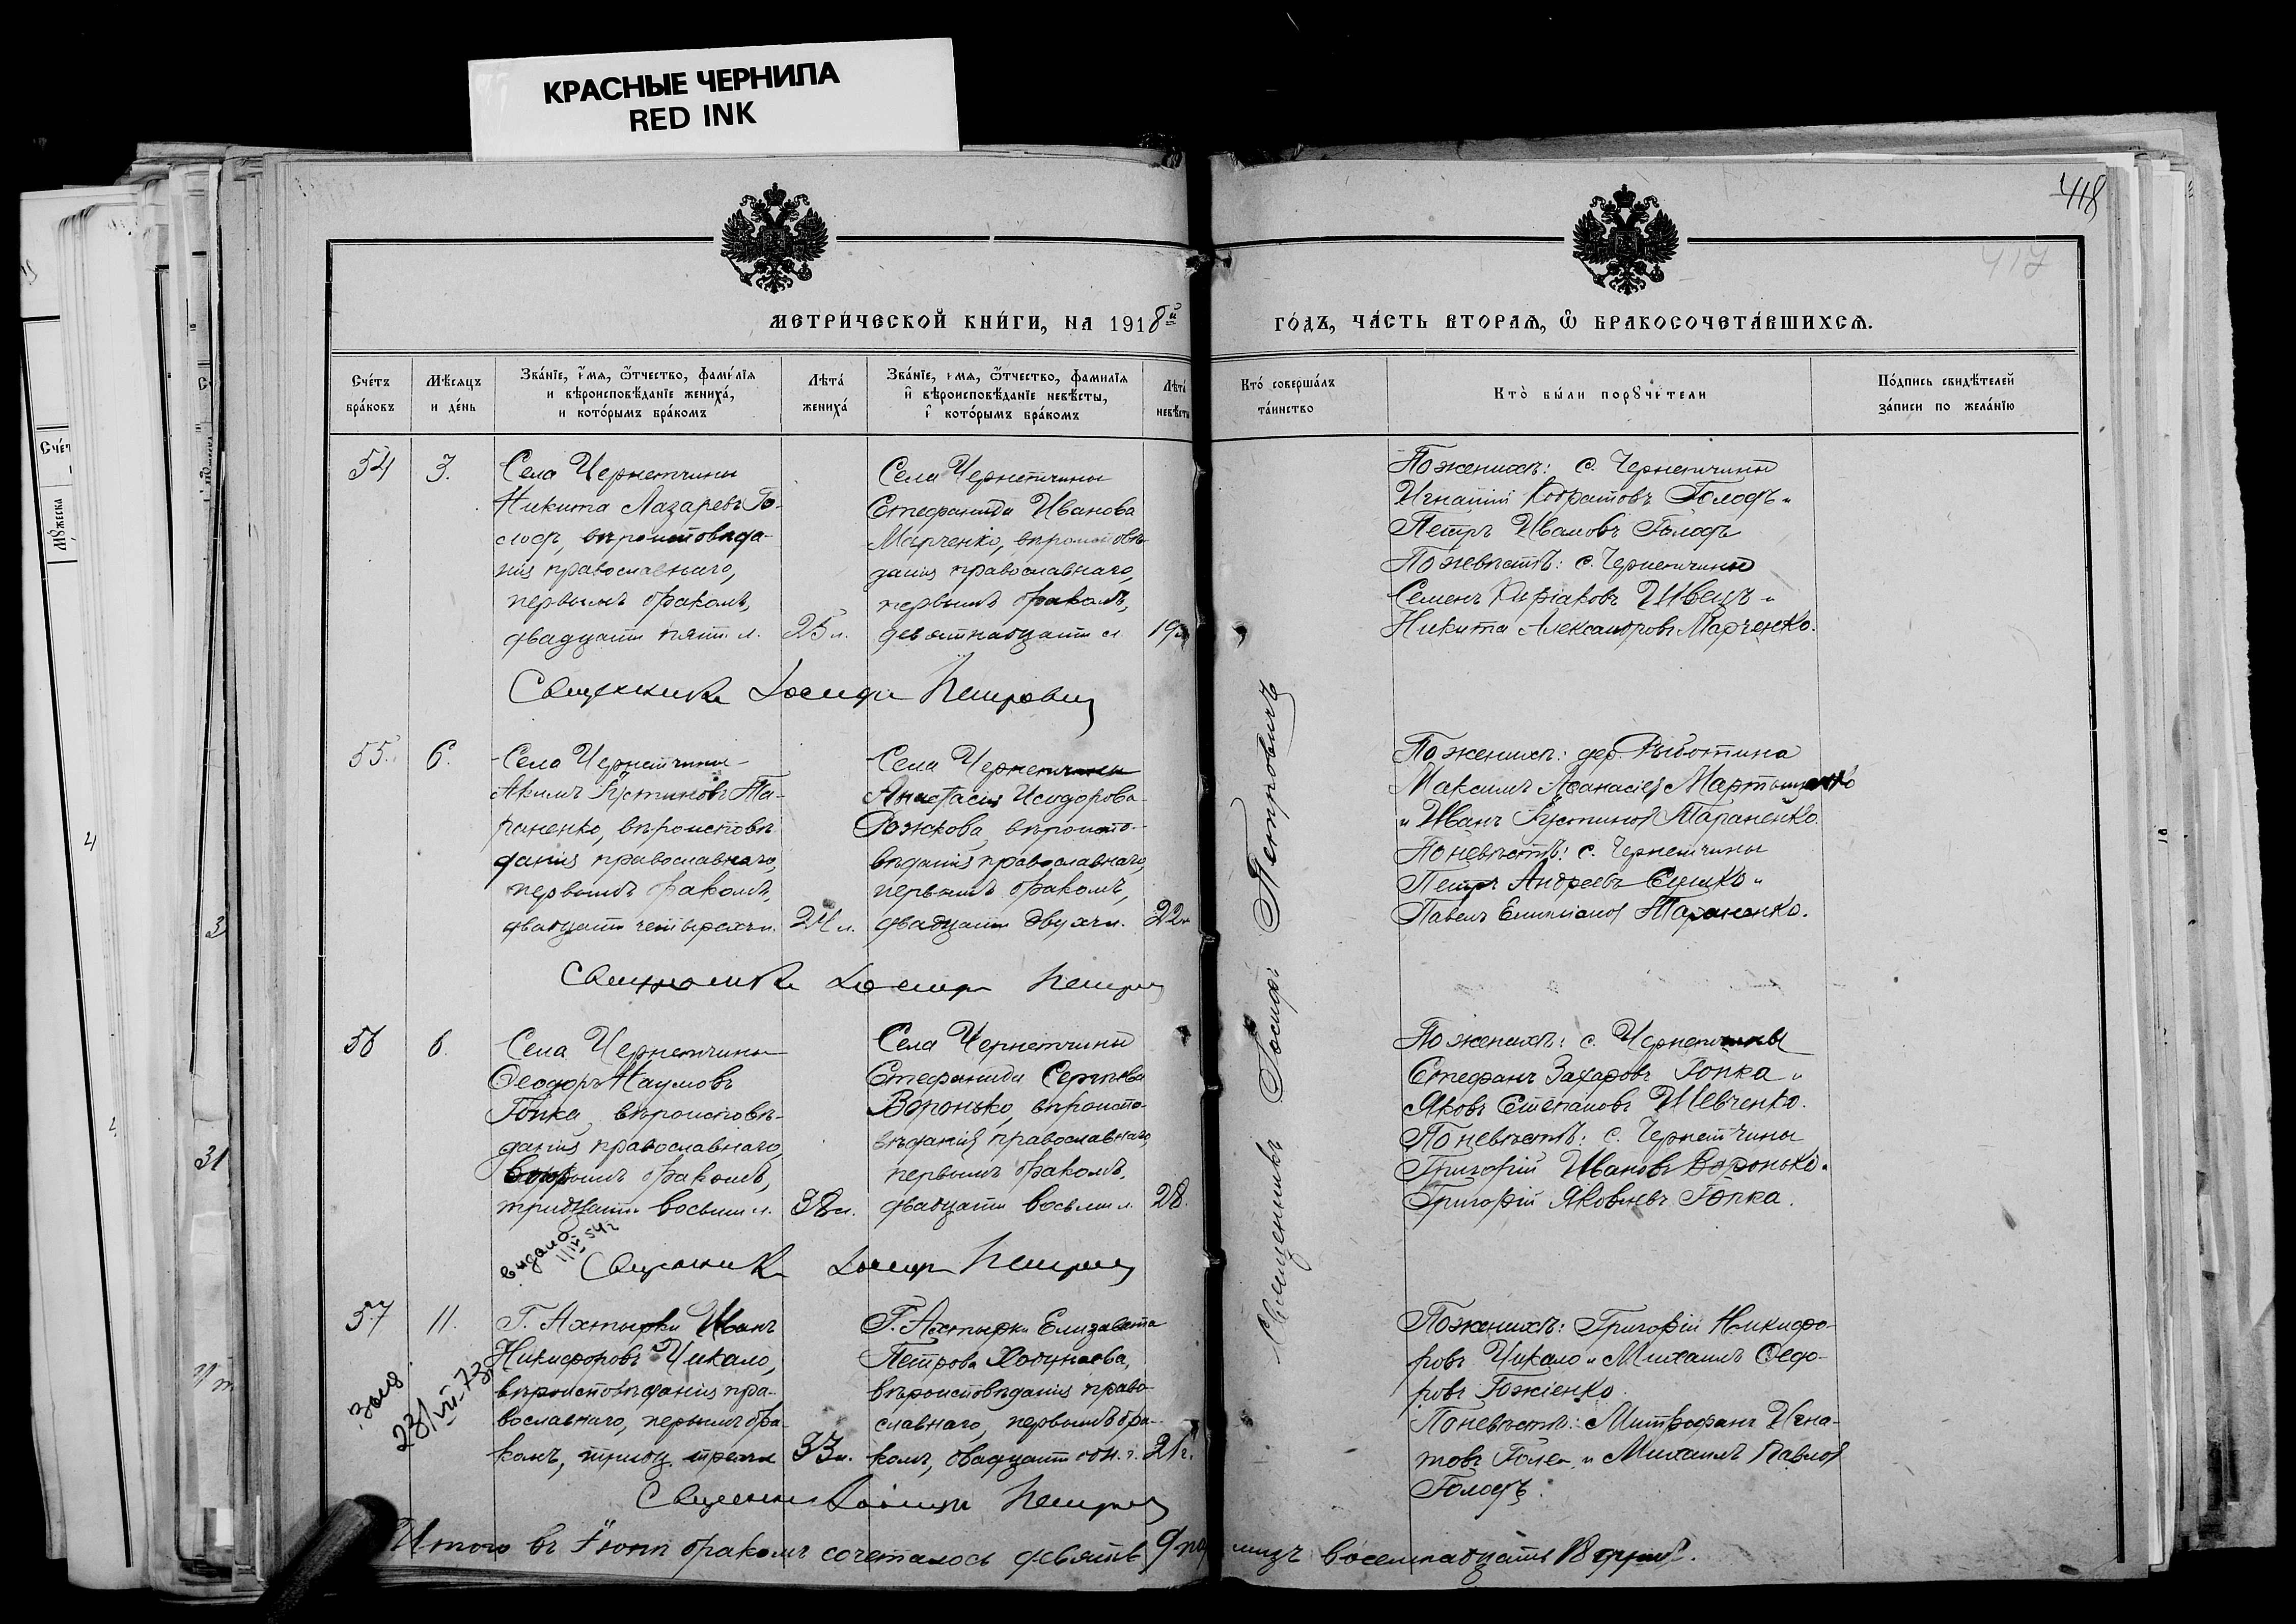 КРАСНЫЕ ЧЕРНИЛА
RED INK
418
417
МЕТРИ́ЧЕСКОЙ КНИ́ГИ, НА 1918й
ГО́ДЪ, ЧА́СТЬ ВТОРАѦ, Ѽ БРАКОСОЧЕТА́ВШИХСѦ.
Сче́тъ бра́ковъ
Мѣ́сяцъ и де́нь
Зва́нїе, и́мѧ, ѻ́тчество, фами́лїѧ
и вѣроисповѣ́данїе жениха́,
и кото́рымъ бра́комъ
Лѣта́ жениха́
Зва́нїе, и́мѧ, ѻ́тчество, фамилїѧ
и҆ вѣроисповѣ́данїе невѣ́сты,
и҆ кото́рымъ бра́комъ
Лѣта́ невѣсты
Кто́ соверша́лъ та́инство
Кто̀ бы́ли порꙋчи́тели
По́дпись свидѣ́телей за́писи по жела́нїю
54
3.
Села Чернетчины
Никита Лазаревъ Го-
лодъ, вѣроисповѣда-
нія православнаго,
первымъ бракомъ,
двадцати пяти л.
25 л.
Села Чернетчины
Стефанида Иванова
Марченко, вѣроисповѣ-
данія православнаго,
первымъ бракомъ,
девятнадцати л
19
Священникъ Іосифъ Петровичъ
По женихѣ: с. Чернетчины
Игнатій Голодъ и
Петръ Ивановъ Голодъ
По невѣстѣ: с. Чернетчины
Семенъ Киріаковъ Швецъ и
Никита Александровъ Марченко.
55.
6.
Села Чернетчины
Акимъ Іустиновъ Та-
раненко, вѣроисповѣ-
данія православнаго,
первымъ бракомъ,
двадцати четырехъ л.
24 л.
Села Чернетчины
Анастасія Исидорова
Рожкова, вѣроиспо-
вѣданія православнаго,
первымъ бракомъ,
двадцати двухъ л.
22
Священникъ Іосифъ
По женихѣ: дер.
Максимъ Аѳанасіев Мартыненко
и Иванъ Іустинов Тараненко.
По невѣстѣ: с. Чернетчины
Петръ Андреевъ и
Павелъ Тараненко.
56
6.
Села Чернетчины
Ѳеодоръ Наумовъ
Гопка, вѣроисповѣ-
данія православнаго,
вторымъ бракомъ,
тридцати восьми л.
38 л.
Села Чернетчины
Стефанида Сергѣева
Воронько, вѣроиспо-
вѣданія православнаго
первымъ бракомъ.
двадцати восьми л.
28.
Священникъ Іосифъ
По женихѣ: с. Чернетчины
Стефанъ Захаровъ Гопка и
Яковъ Степановъ Шевченко.
По невѣстѣ: с. Чернетчины
Григорій Ивановъ Воронько и
Григорій Яковлевъ Гопка.
выдано
11/IV 54 г
57
11.
Г. Ахтырки Иванъ
Никифоровъ Чикало,
вѣроисповѣданія пра-
вославнаго, первымъ бра-
комъ, тридц. трехъ
33 л.
Г. Ахтырки Елизавета
Петрова
вѣроисповѣданія право-
славнаго, первымъ бра-
комъ, двадцати одн. г.
21 г.
Священникъ Іосифъ
По женихѣ: Григорій Никифо-
ровъ Чикало и Михаилъ Ѳедо-
ровъ
По невѣстѣ: Митрофанъ Игна-
товъ и Михаилъ Павлов
Голодъ.
28/VII-73
Священникъ Іосифъ Петровичъ
Итого въ Іюнѣ бракомъ сочеталось девять 9 восемнадцать 18